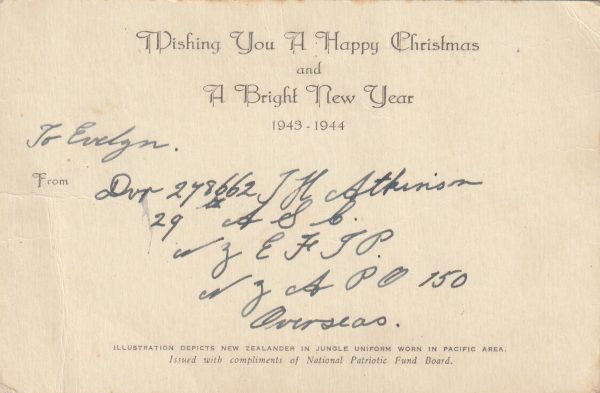 Wishing You A Happy Christmas
and
A Bright New Year
1943-1944
To Evelyn.
From Dvr 278662 J H Atkinson
29th A S C.
N Z E F I P.
N Z A P O 150
Overseas.
ILLUSTRATION DEPICTS NEW ZEALANDER IN JUNGLE UNIFORM WORN IN PACIFIC AREA.
Issued with compliments of National Patriotic Fund Board.